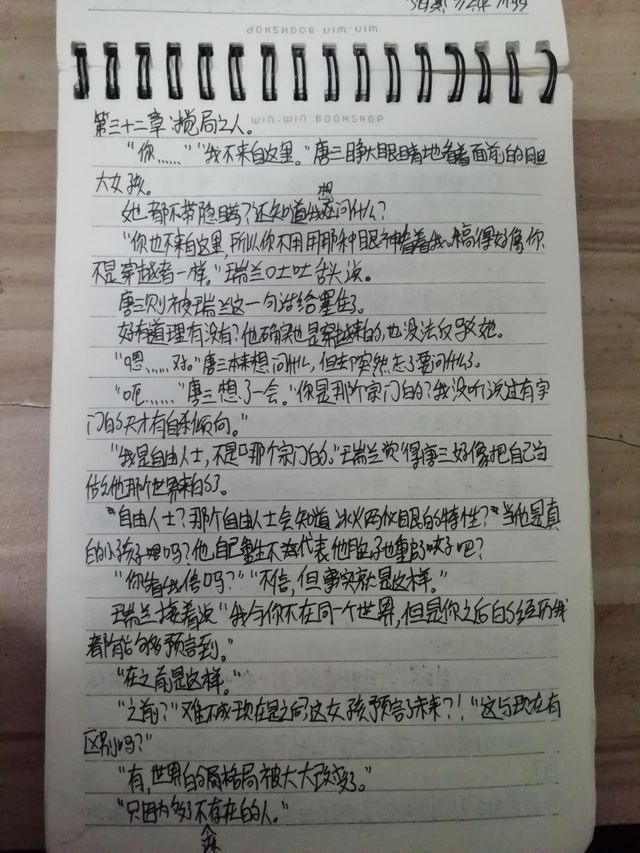 WIN-WIN BOOKSHOP
WIN-WIN BOOKSHOP
第三十二章:搅局之人。
“你……”“我不来自这里。”唐三睁大眼睛地看着面前的胆
大女孩。
她都不带隐瞒?还知道我想问什么?
“你也不来自这里,所以你不用用那种眼神看着我。搞得好像你
不是穿越者一样。”瑞兰吐吐舌头说。
唐三则被瑞兰这一句话给墨住了。
好有道理有没有?他确实也是穿越来的,也没法反驳她。
“嗯……对。”唐三本来想问什么,但却突然忘了要问什么了。
“呃……”唐三想了一会。“你是那个宗门的?我没听说过有宗
门的天才有自杀倾向。”
“我是自由人士,不是那个宗门的。”瑞兰觉得唐三好像把自己当
做他那个世界来的了。
“自由人士?那个自由人士会知道冰火两仪眼的特性?”当他是真
的小孩子吗?他自己重生不代表他脑子也重启了吧?
“你看我信吗?”“不信,但事实就是这样。”
瑞兰接着说“我与你不在同一个世界,但是你之后的经历我
都有能够预言到。”
“在之前是这样。”
“之前?”难不成现在是之间这女孩预言了未来?!“这与现在有
区别吗?”
“有,世界的局格局被大大改变了。”
“只因为多了不存在的人。”